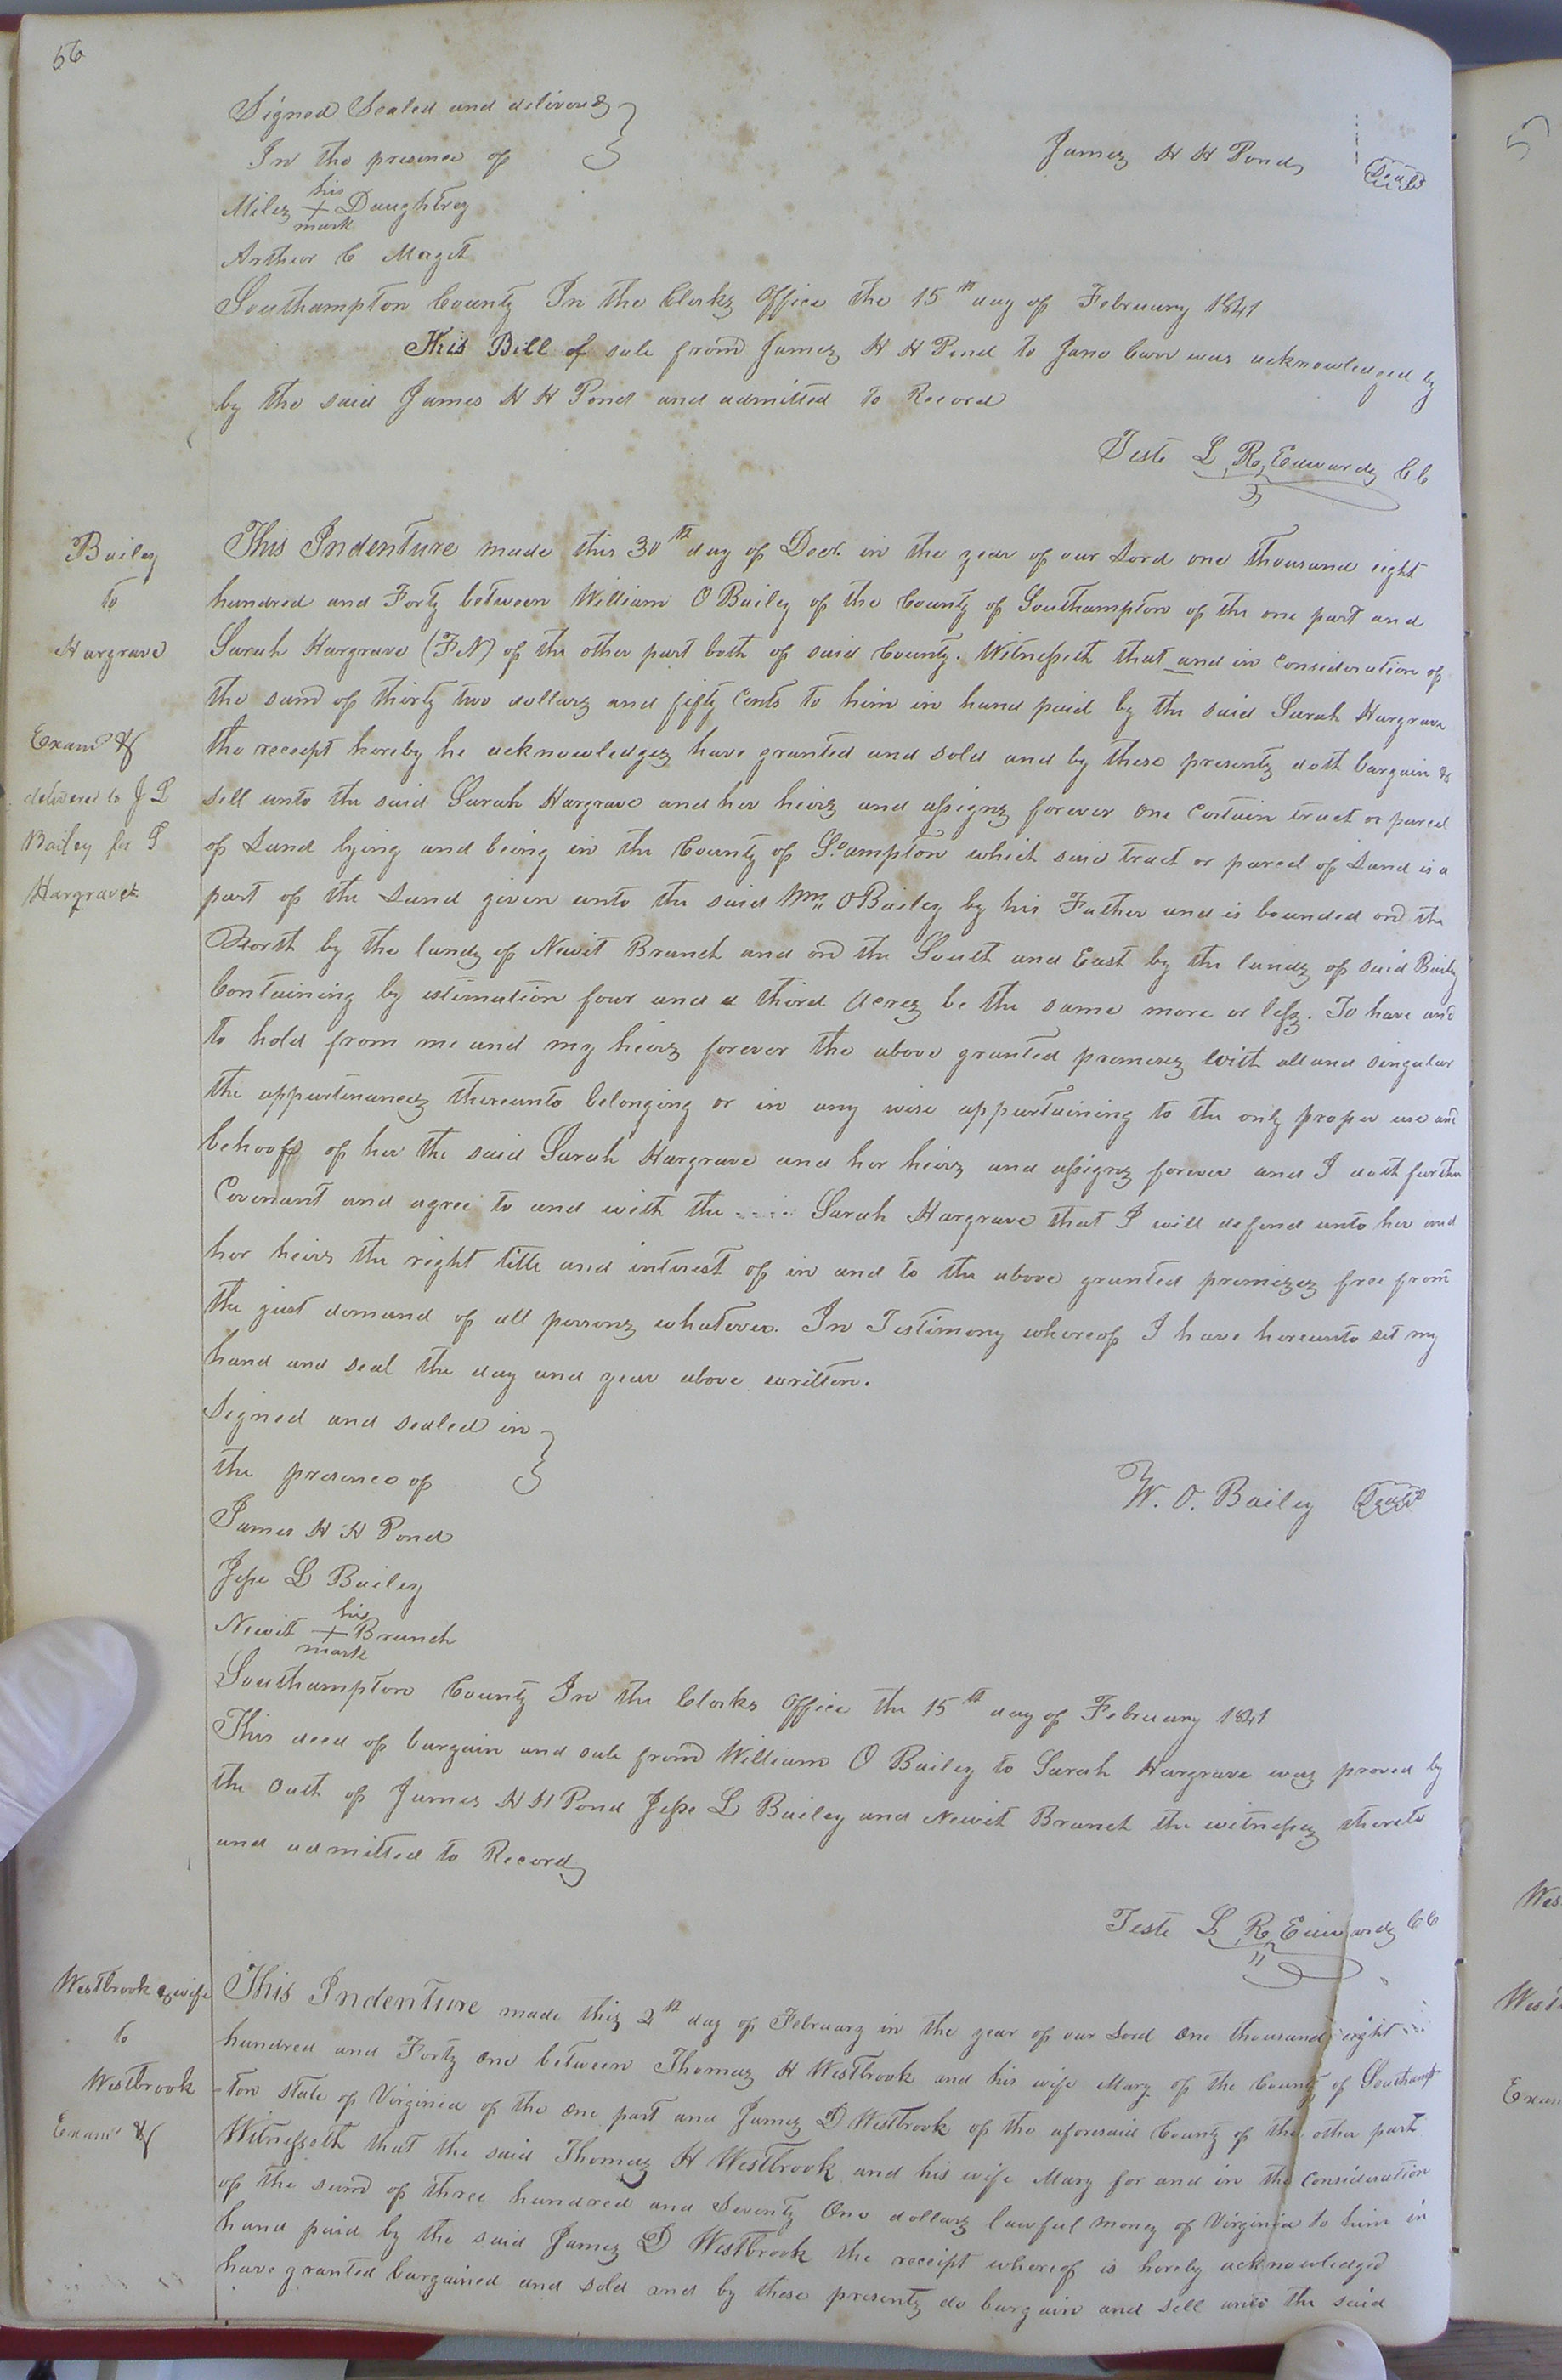 56
Signed Sealed and delivered
In the presence of
James H H Pond Seal
his
Miles + Daughtrey
mark
Arthur C Maget
Southampton County In the Clerks Office the 15th day of February 1841
This Bill of sale from James H H Pond to Jane Carr was acknowledged by
by the said James H H Pond and admitted to Record
Teste L R Edwards CC
Bailey
to
Hargrave
Examd &
delivered to J L
Bailey for S
Hargrave
This Indenture made this 30th day of Decr. in the year of our Lord one thousand eight
hundred and Forty between William O Bailey of the County of Southampton of the one part and
Sarah Hargrave (F N) of the other part both of said County. Witnesseth that and in consideration of
the sum of thirty two dollars and fifty Cents to him in hand paid by the said Sarah Hargrave
the receipt hereby he acknowledges have granted and sold and by these presents doth bargain &
sell unto the said Sarah Hargrave and her heirs and assigns forever one Certain tract or parcel
of Land lying and being in the County of So.ampton which said tract or parcel of Land is a
part of the Land given unto the said Wm. O Bailey by his Father and is bounded on the
North by the lands of Newit Branch and on the South and East by the lands of said Bailey
Containing by estimation four and a third Acres be the same more or less. To have and
to hold from me and my heirs forever the above granted premises with all and singular
the appurtenances thereunto belonging or in any wise appurtaining to the only proper use and
behoof of her the said Sarah Hargrave and her heirs and assigns forever and I doth further
Covenant and agree to and with the .... Sarah Hargrave that I will defend unto her and
her heirs the right title and interest of in and to the above granted premises free from
the just demand of all persons whatever. In Testimony whereof I have hereunto set my
hand and seal the day and year above written.
Signed and sealed in
the presence of
W. O. Bailey Seal
James H H Pond
Jesse L Bailey
his
Newit + Branch
mark
Southampton County In the Clerks Office the 15th day of February 1841
This deed of bargain and sale from William O Bailey to Sarah Hargrave was proved by
the oath of James H H Pond Jesse L Bailey and Newit Branch the witnesses thereto
and admitted to Record
Teste L R Edwards CC
Westbrook & wife
to
Westbrook
Examd &
This Indenture made this 2nd day of February in the year of our Lord One thousand eight
hundred and Forty One between Thomas H Westbrook and his wife Mary of the County of Southamp
-ton state of Virginia of the One part and James D Westbrook of the aforesaid County of the other part
Witnesseth that the said Thomas H Westbrook and his wife Mary for and in the consideration
of the sum of three hundred and Seventy One dollars lawful money of Virginia to him in
hand paid by the said James D Westbrook the receipt whereof is hereby acknowledged
have granted bargained and sold and by these presents do bargain and sell unto the said
57
Wes
West
Exam